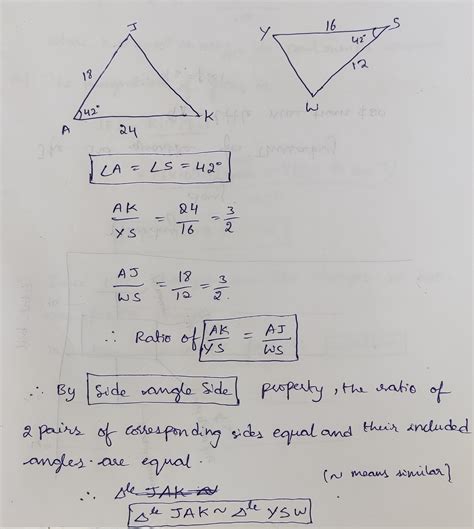 J
Y 16 S
42°
18
12
A 42° K
24
W
∠A = ∠S = 42°
AK/YS = 24/16 = 3/2
AJ/WS = 18/12 = 3/2.
∴ Ratio of AK/YS = AJ/WS
∴ By Side angle Side property, the ratio of
2 pairs of corresponding sides equal and their included
angles are equal.
(~ means similar)
∴ Δle JAK ~
Δle JAK ~ Δle YSW